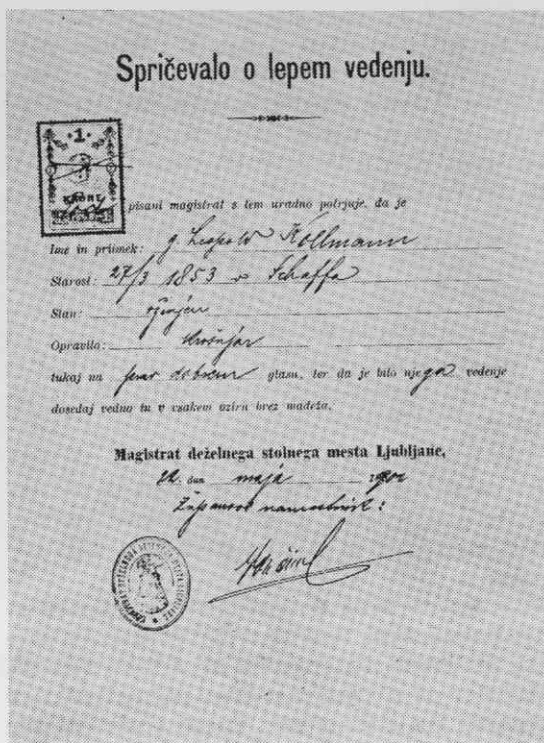 Spričevalo o lepem vedenju.
1
pisani magistrat s tem uradno potrjuje, da je
Ime in priimek: g. Leopold Kollmann
Starost: 27/3 1853 v Schaffa
Stan: oženjen
Opravilo: krošnjar
tukaj na prav dobrem glasu, ter da je bilo njega vedenje
dosedaj vedno in v vsakem oziru brez madeža.
Magistrat deželnega stolnega mesta Ljubljane,
dan maja
Županov namestnik: